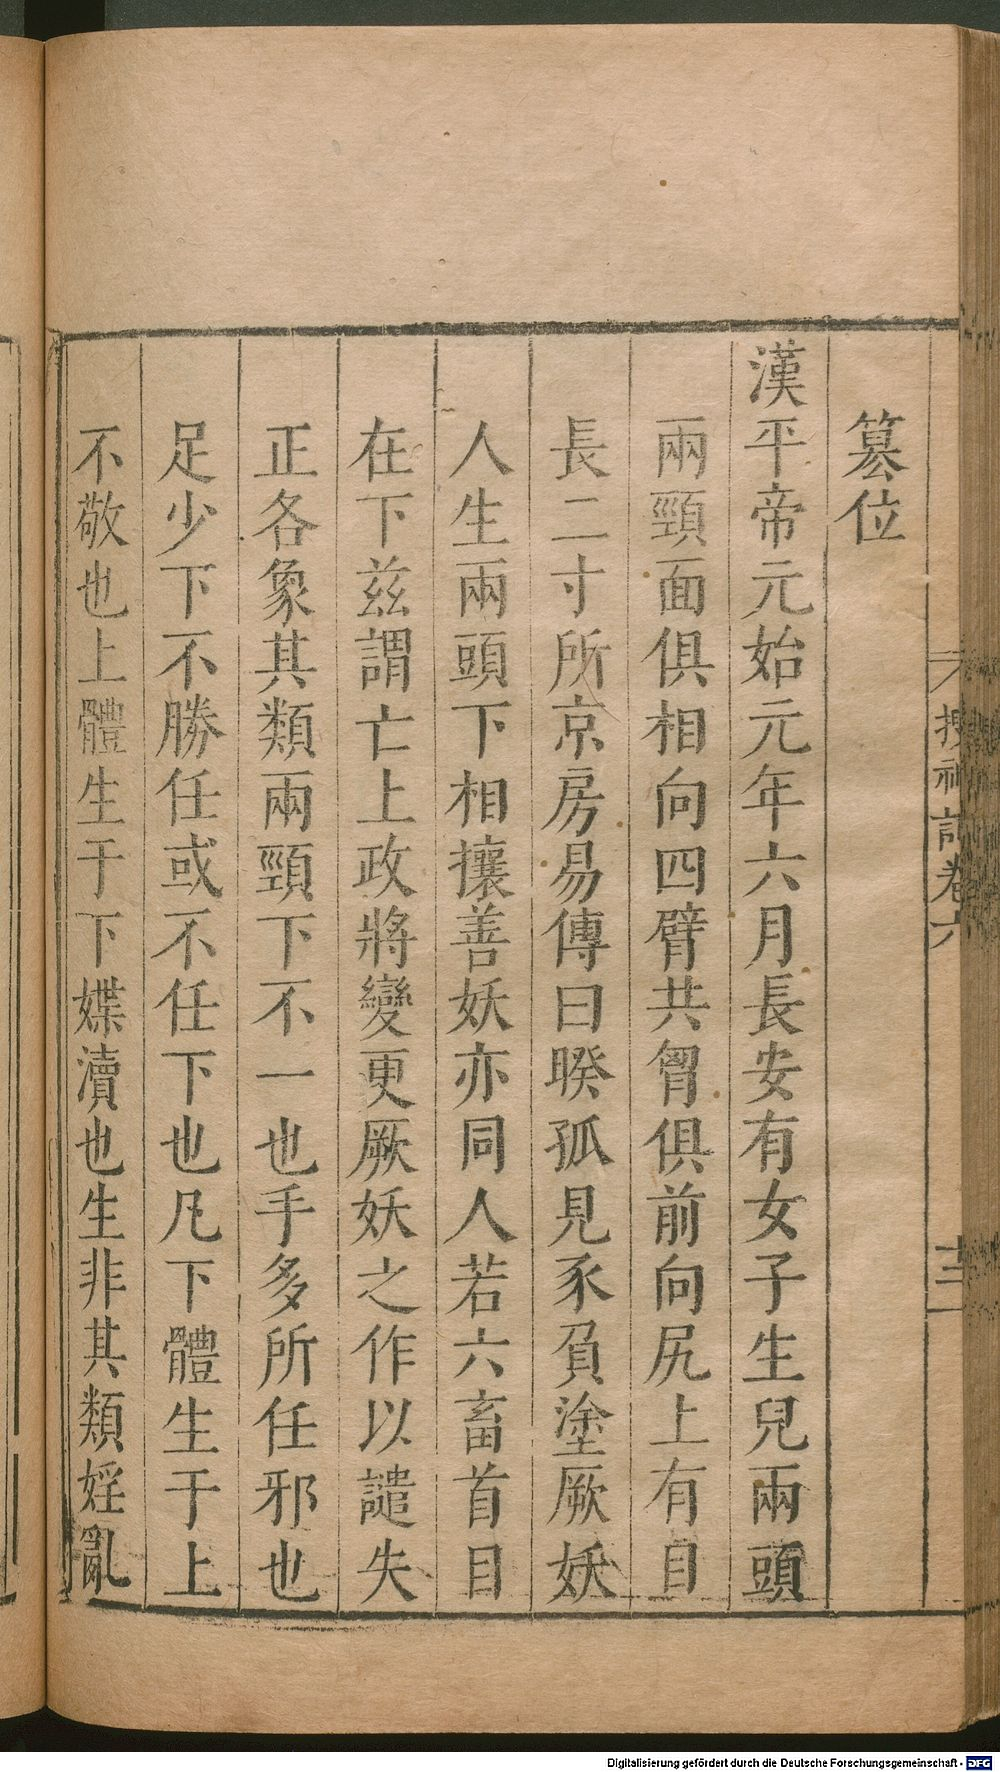 篡位
漢平帝元始元年六月長安有女子生兒兩頭
兩頸面俱相向四臂共胷俱前向尻上有目
長二寸所京房易傳曰睽孤見豕負塗厥妖
人生兩頭下相攘善妖亦同人若六畜首目
在下兹謂亡上政將變更厥妖之作以譴失
正各象其類兩頸下不一也手多所任邪也
足少下不勝任或不任下也凡下體生于上
不敬也上體生于下媟瀆也生非其類婬亂
搜神記卷六
Digitalisierung gefördert durch die Deutsche Forschungsgemeinschaft - DFG